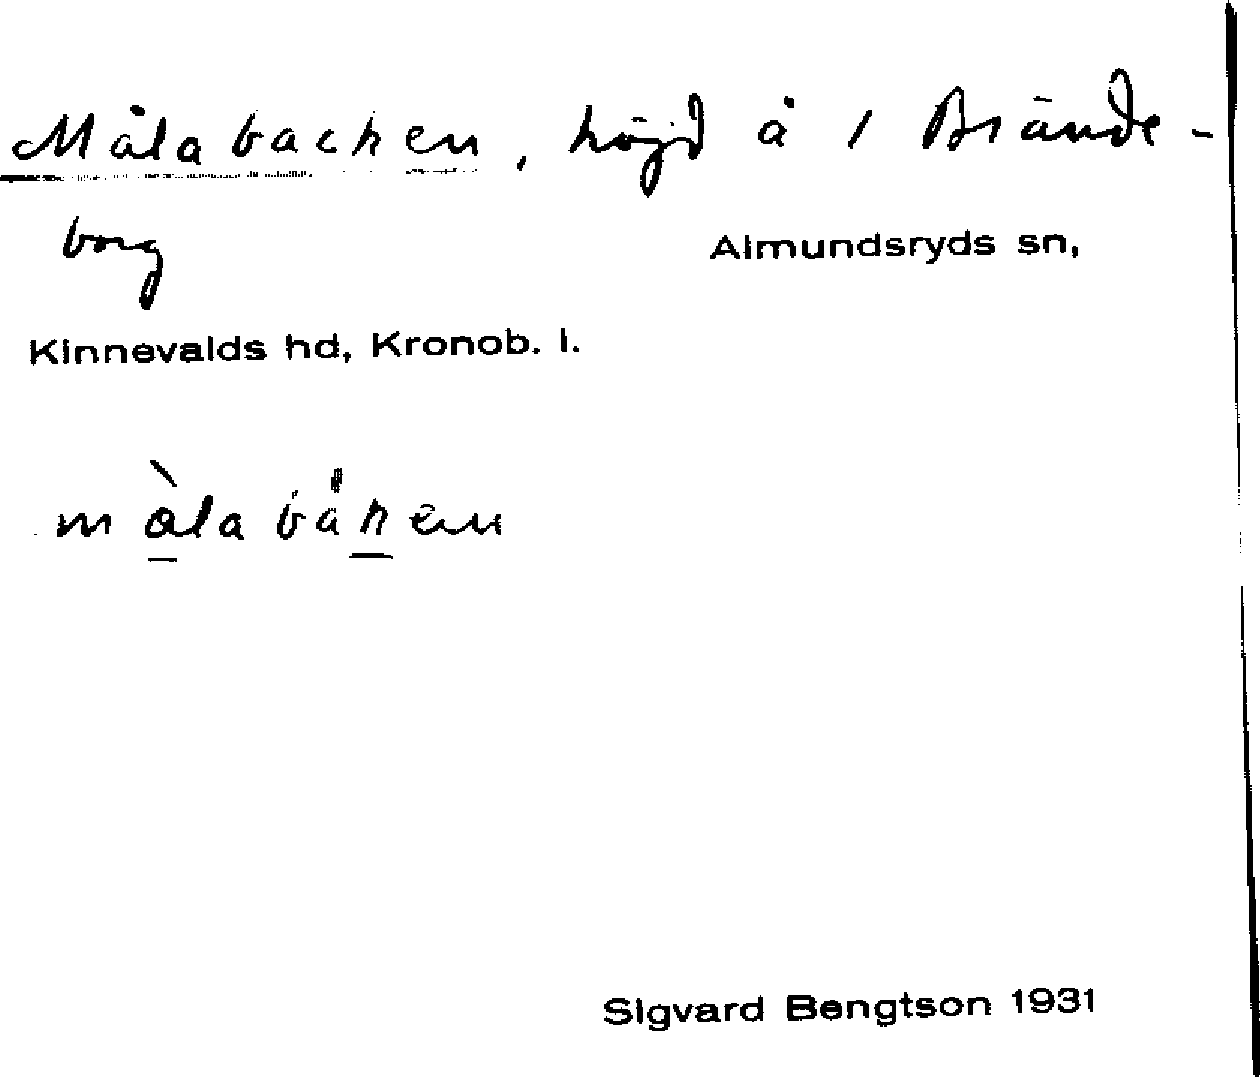 Målabacken, höjd å 1 Brände-
borg
Almundsryds sn,
Kinnevalds hd, Kronob. l.
Sigvard Bengtson 1931